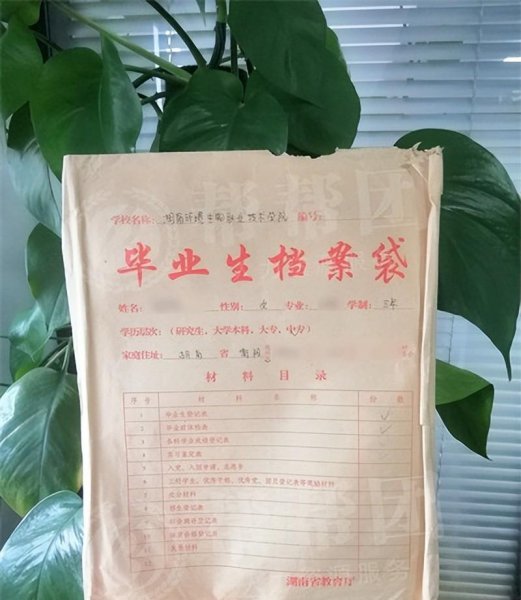 学校名称：湖南环境生物职业技术学院 编号：
毕业生档案袋
姓名： 性别：女 专业： 学制：三年
学历层次：（研究生，大学本科，大专，中专）
家庭住址：湖南 省 衡阳
材料目录
序号 材料名称 份数
1 毕业生登记表 ✓
2 毕业前体检表 ✓
3 各科学业成绩登记表
4 实习鉴定表
5 入党、入团申请、志愿书
6 三好学生、优秀干部、优秀党、团员登记表等奖励材料
7 处分材料
8 招生登记表
9
10
11
12
湖南省教育厅
帮帮团